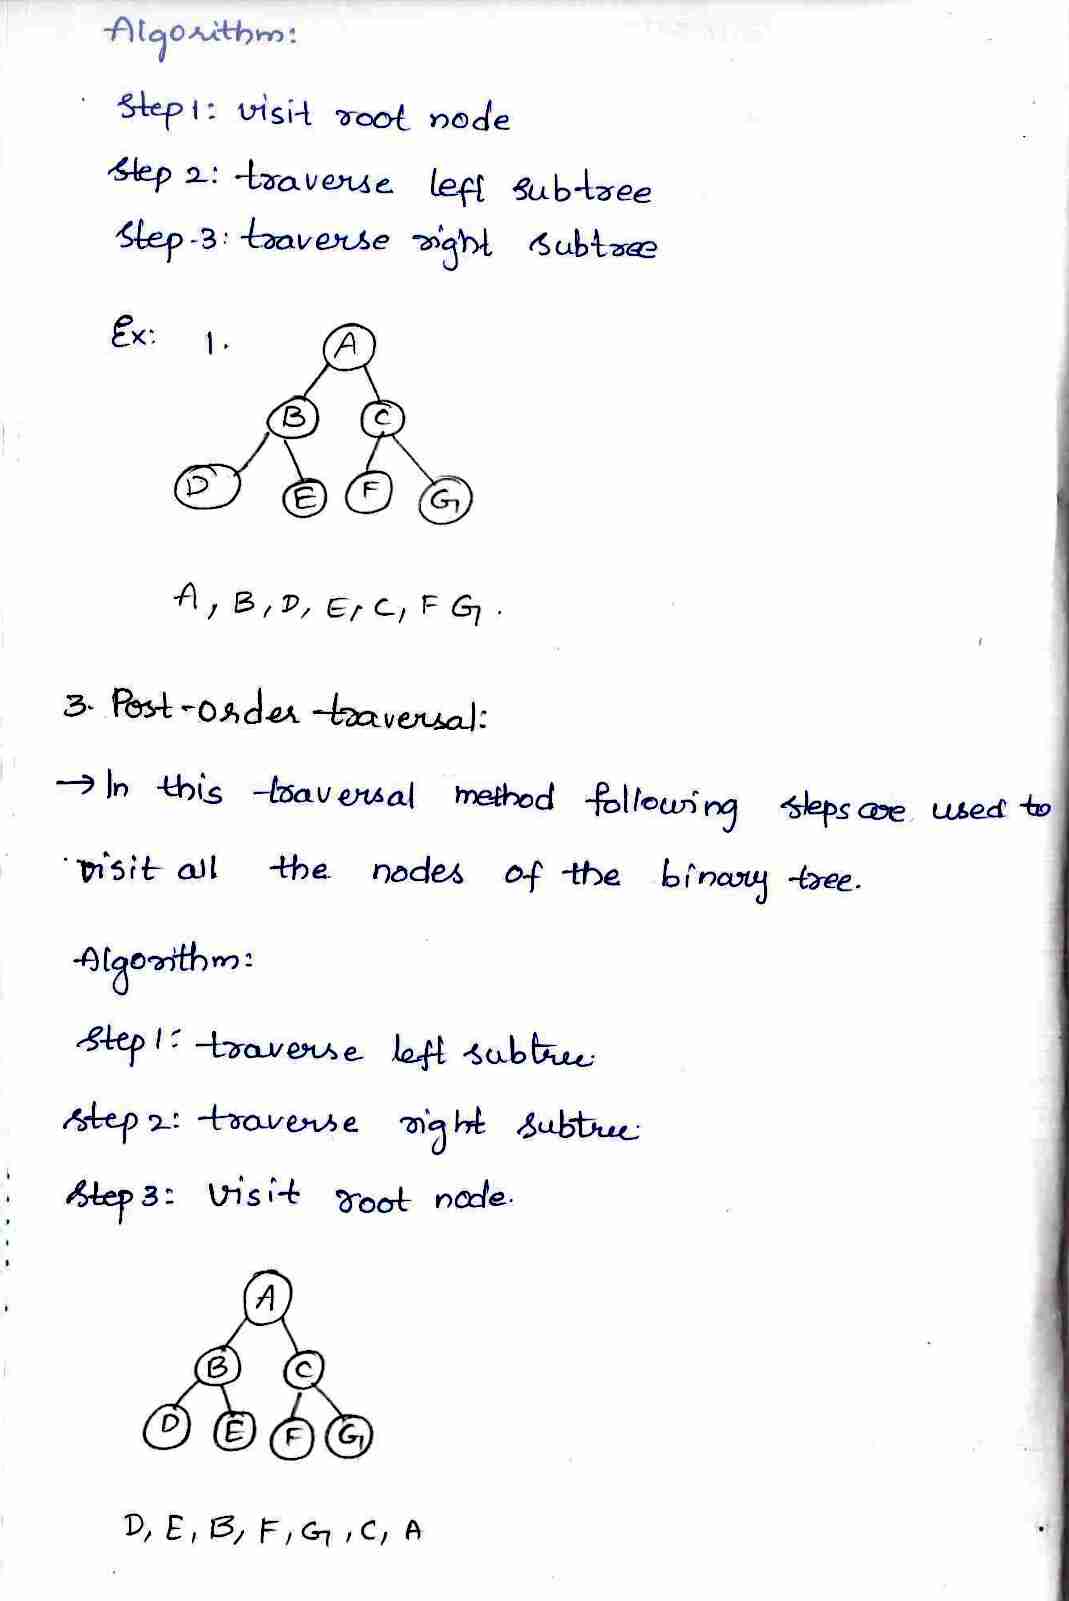 Algorithm:
Step 1: visit root node
Step 2: traverse left subtree
Step-3: traverse right subtree
Ex: 1.
A
B C
D E F G
A, B, D, E, C, F G.
3. Post-order traversal:
→ In this traversal method following steps are used to
visit all the nodes of the binary tree.
Algorithm:
Step 1: traverse left subtree.
Step 2: traverse right subtree.
Step 3: Visit root node.
A
B C
D E F G
D, E, B, F, G, C, A